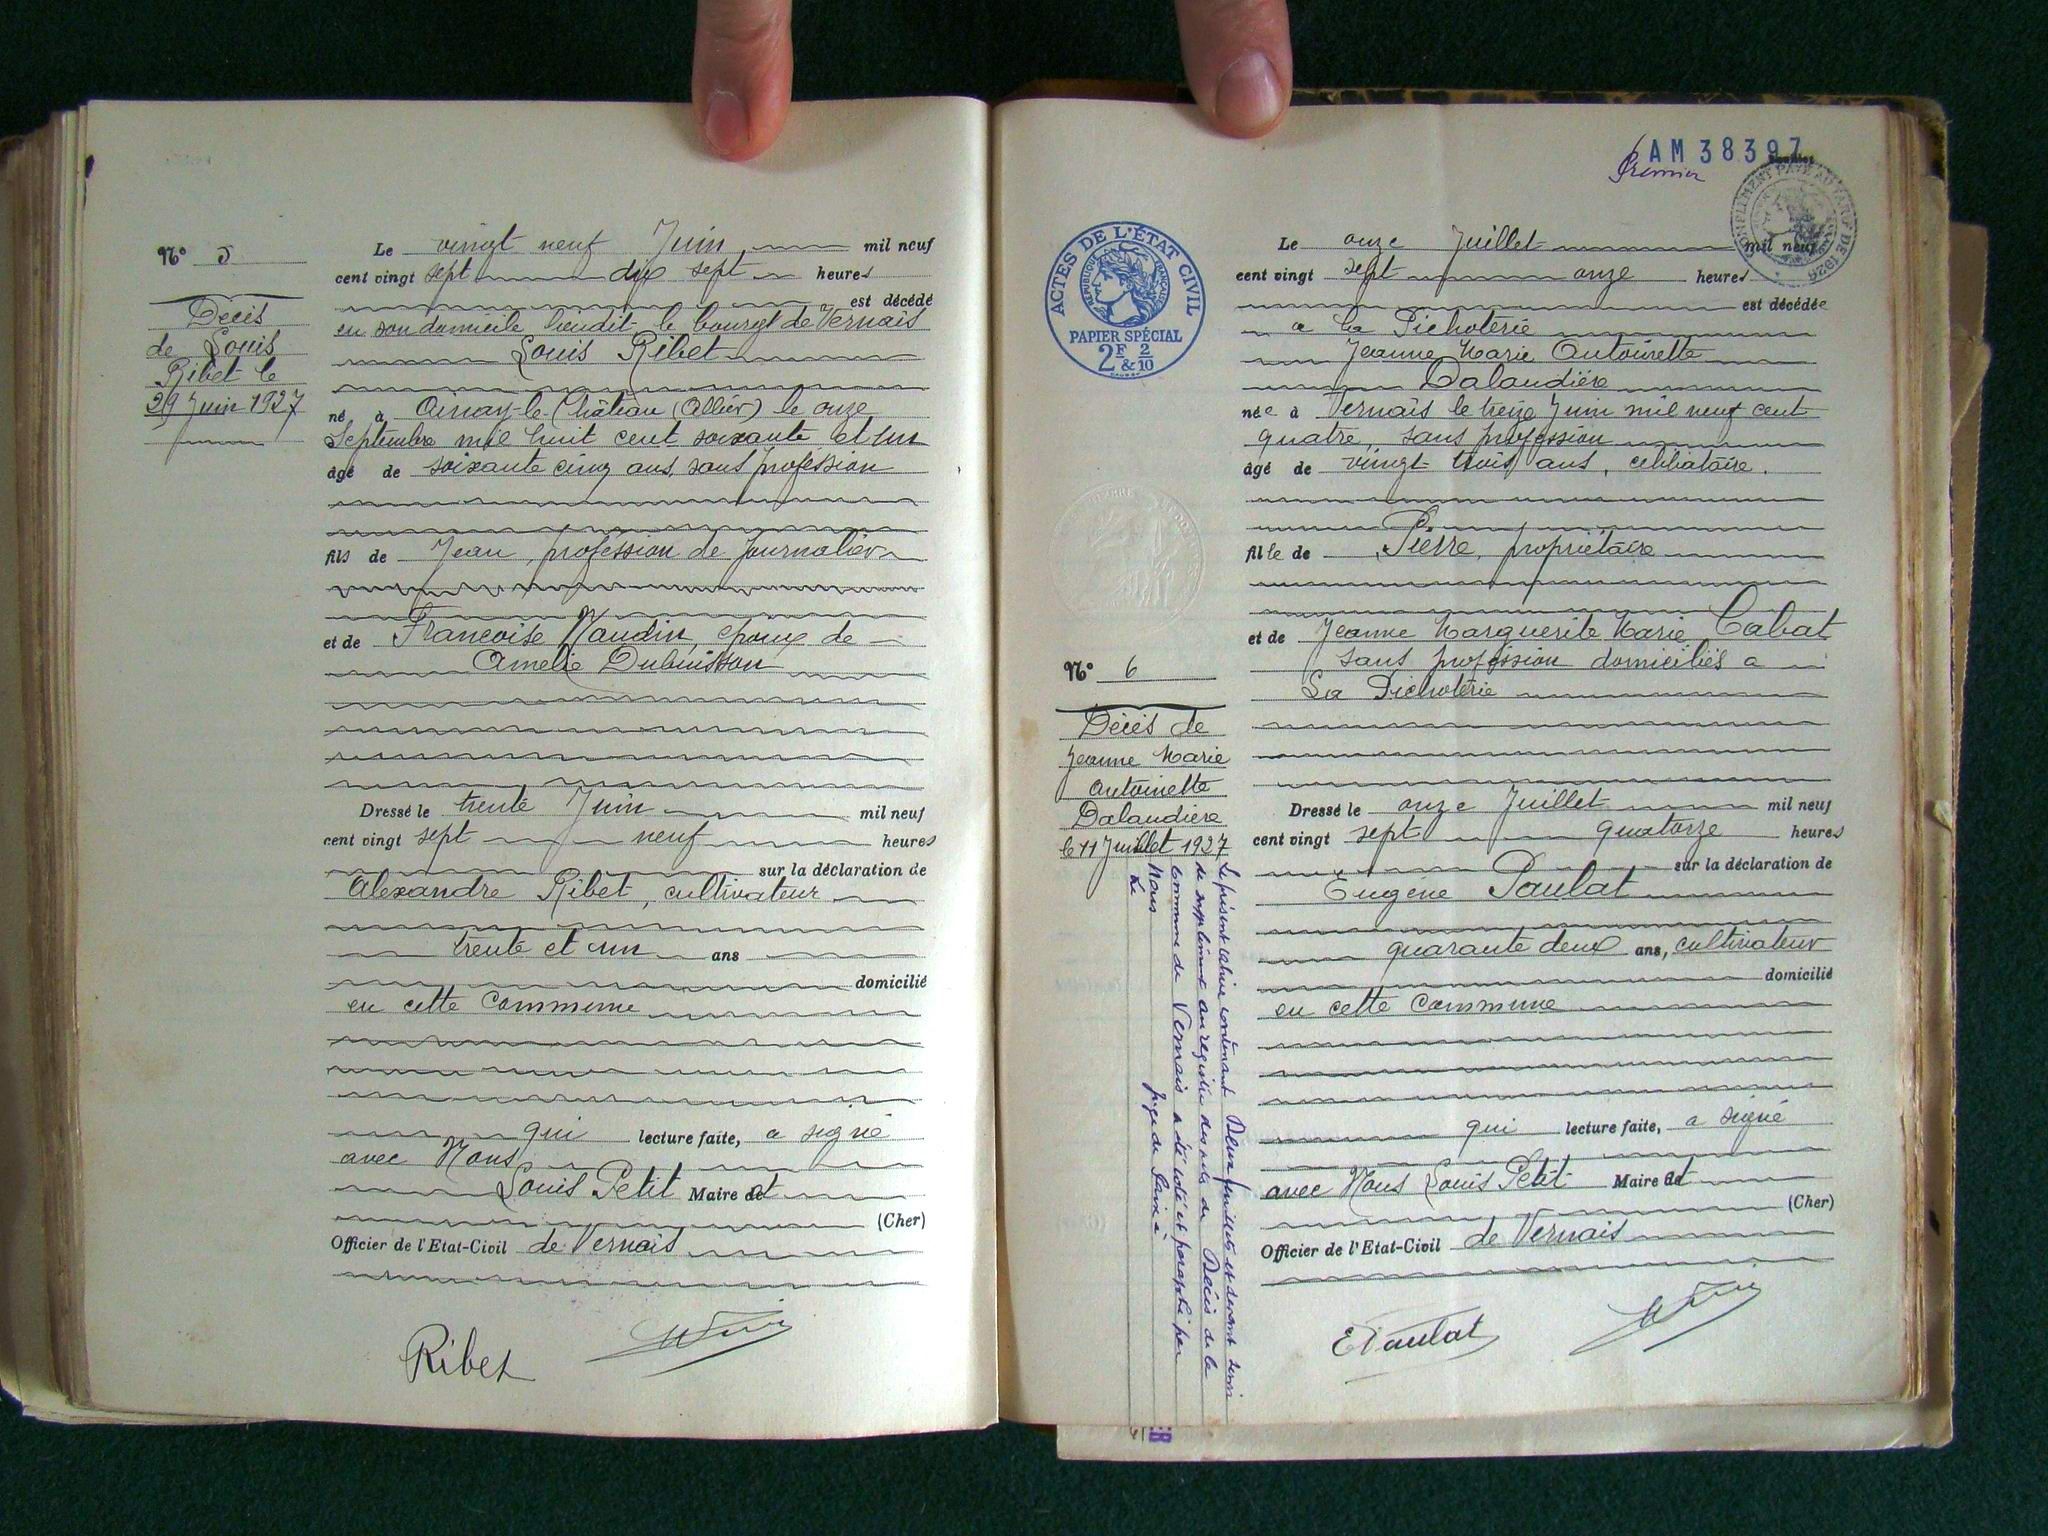 N° 5
Décès
de Louis
Ribet le
29 Juin 1927
Le vingt neuf Juin mil neuf
cent vingt sept dix sept heures
est décédé
en son domicile lieudit le bourg de Vernais
Louis Ribet
né à Ainay-le-Château (Allier) le onze
Septembre mil huit cent soixante et un
âgé de soixante cinq ans, sans profession
fils de Jean, profession de Journalier
et de Françoise Naudin, époux de
Amélie Dubuisson
Dressé le trente Juin mil neuf
cent vingt sept neuf heures
sur la déclaration de
Alexandre Ribet, cultivateur
trente et un ans
domicilié
en cette Commune
qui lecture faite, a signé
avec Nous
Louis Petit Maire et
(Cher)
Officier de l'Etat-Civil de Vernais
Ribet
AM 38397
Premier
ACTES DE L'ÉTAT CIVIL
RÉPUBLIQUE FRANÇAISE
PAPIER SPÉCIAL
2F & 2/10
N° 6
Décès de
Jeanne Marie
Antoinette
Dalaudière
le 11 Juillet 1927
Le présent cahier contenant Deux feuillets et devant servir
de supplément au registre des actes de Décès de la
Commune de Vernais a été coté et paraphé par
Nous Juge de Paix à
Le
Le onze Juillet mil neuf
cent vingt sept onze heures
est décédée
a la Pichoterie
Jeanne Marie Antoinette
Dalaudière
née à Vernais le treize Juin mil neuf cent
quatre, sans profession
âgé de vingt trois ans, célibataire.
fille de Pierre, propriétaire
et de Jeanne Marguerite Marie Cabat
sans profession domiciliés a
La Pichoterie
Dressé le onze Juillet mil neuf
cent vingt sept quatorze heures
sur la déclaration de
Eugène Paulat
quarante deux ans, cultivateur
domicilié
en cette Commune
qui lecture faite, a signé
avec Nous Louis Petit Maire et
(Cher)
Officier de l'Etat-Civil de Vernais
E Paulat